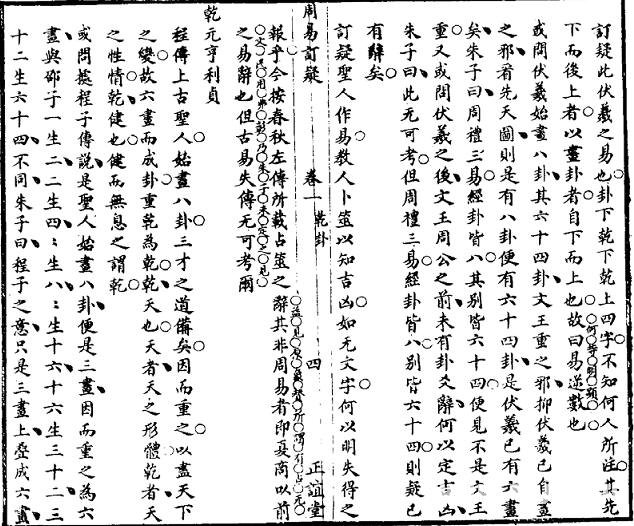 訂疑此伏羲之易也卦下乾下乾上四字不知何人所注其先
下而後上者以畫卦者自下而上也故曰易逆數也何等明顯
或問伏羲始畫八卦其六十四卦文王重之邪抑伏羲已自畫
之邪看先天圖則是有八卦便有六十四卦是伏羲已有六畫
矣朱子曰周禮三易經卦皆八其別皆六十四便見不是文王
重又或問伏羲之後文王周公之前未有卦爻辭何以定吉凶
朱子曰此无可考但周禮三易經卦皆八別皆六十四則疑已
有辭矣
訂疑聖人作易教人卜筮以知吉凶如无文字何以明失得之
周易訂疑 卷一 乾卦 四 正誼堂
報乎今按春秋左傳所載占筮之辭其非周易者即夏商以前
之易辭也但古易失傳无可考爾
乾元亨利貞
程傳上古聖人始畫八卦三才之道備矣因而重之以盡天下
之變故六畫而成卦重乾為乾乾天也天者天之形體乾者天
之性情乾健也健而無息之謂乾
或問據程子傳說是聖人始畫八卦便是三畫因而重之為六
畫與邵子一生二二生四〻生八〻生十六十六生三十二三
十二生六十四不同朱子曰程子之意只是三畫上疊成六畫